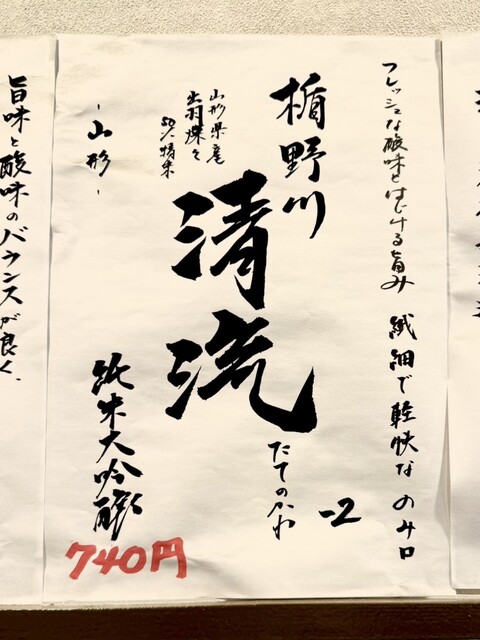 フレッシュな酸味とはじける旨み 繊細で軽快なのみ口
-2
楯野川
たてのかわ
清流
山形県産
出羽燦々
50%精米
-山形-
純米大吟醸
740円
旨味と酸味のバランスが良く、